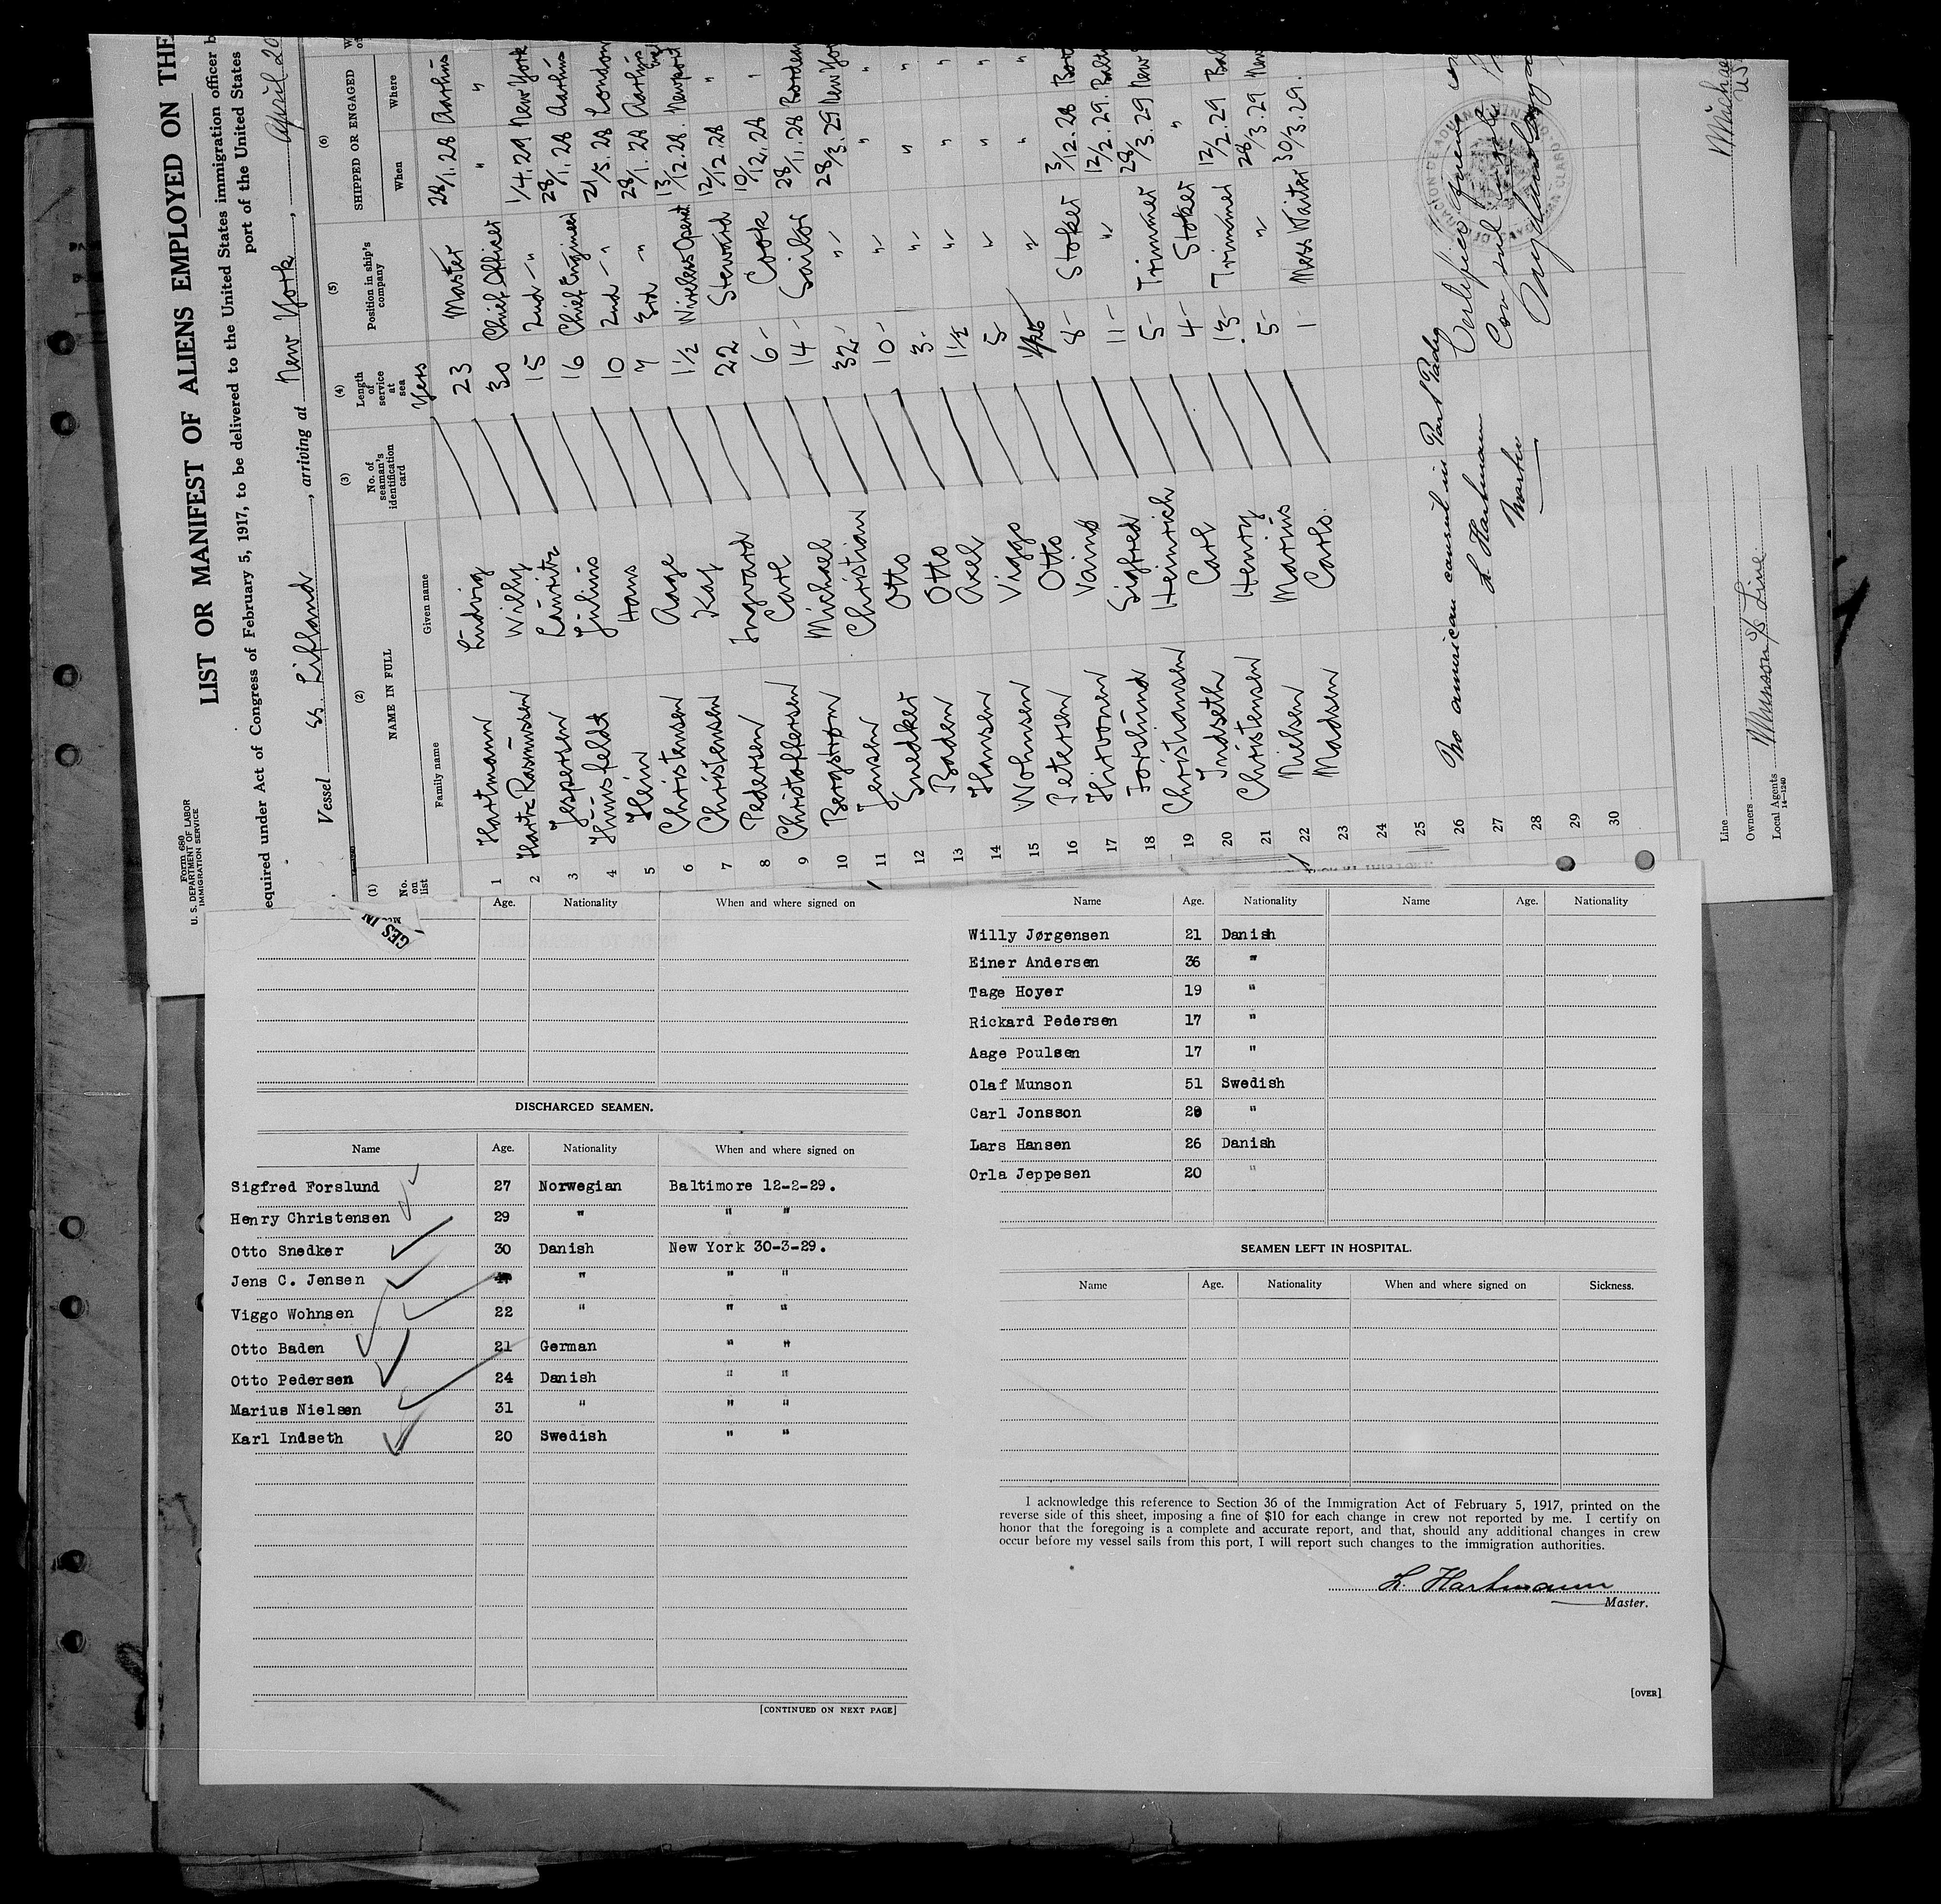 Form 680
U. S. DEPARTMENT OF LABOR
IMMIGRATION SERVICE
LIST OR MANIFEST OF ALIENS EMPLOYED ON THE
equired under Act of Congress of February 5, 1917, to be delivered to the United States immigration officer b
port of the United States
Vessel SS. Lifland, arriving at New York, April 20
(1) (2) (3) (4) (5) (6)
No. on list NAME IN FULL No. of seaman's identification card Length of service at sea Position in ship's company SHIPPED OR ENGAGED
Family name Given name Yers When Where
1 Hartmann Ludvig 23 Master 28/1.28 Aarhus
2 Hartz Rasmussen Willy 30 Chief Officer " "
3 Jespersen Lauritz 15 2nd -"- 1/4.29 New York
4 Hünsfeldt Julius 16 Chief Engineer 28/1.28 Aarhus
5 Hein Hans 10 2nd -"- 21/5.28 London
6 Christensen Aage 7 3rd -"- 28/1.28 Aarhus
7 Christensen Kaj 1½ Wireless Operat 13/12.28. Newport
8 Pedersen Ingvard 22 Steward 12/12.28 "
9 Christoffersen Carl 6- Cook 10/12.28 "
10 Bergström Michael 14- Sailor 28/11.28 Bordeau
11 Jensen Christian 32- -"- 28/3.29 New Yor
12 Snedker Otto 10- -"- " "
13 Baden Otto 3- -"- " "
14 Hansen Axel 1½ -"- " "
15 Wohnsen Viggo 5- -"- " "
16 Petersen Otto -"- " "
17 Hirvonen Vainö 8- Stoker 3/12.28
18 Forslund Sigfred 11- -"- 12/2.29. Balt
19 Christiansen Heinrich 5- Trimmer 28/3.29 New
20 Indseth Carl 4- Stoker "
21 Christensen Henry 13- Trimmer 12/2.29 Bal
22 Nielsen Marius 5- -"- 28/3.29 New
23 Madsen Carlo. 1- Mess Waiter 30/3.29.
24
25
26
27
28
29
30
No american consul in Port Pady
L. Hartmann
Master
Line
Owners Munson S/S Line.
Local Agents
14—1240
GES IN
Age. Nationality When and where signed on
DISCHARGED SEAMEN.
Name Age. Nationality When and where signed on
Sigfred Forslund 27 Norwegian Baltimore 12-2-29.
Henry Christensen 29 " " "
Otto Snedker 30 Danish New York 30-3-29.
Jens C. Jensen " " "
Viggo Wohnsen 22 " " "
Otto Baden 21 German " "
Otto Pedersen 24 Danish " "
Marius Nielsen 31 " " "
Karl Indseth 20 Swedish " "
[CONTINUED ON NEXT PAGE]
Name Age. Nationality Name Age. Nationality
Willy Jørgensen 21 Danish
Einer Andersen 36 "
Tage Hoyer 19 "
Rickard Pedersen 17 "
Aage Poulsen 17 "
Olaf Munson 51 Swedish
Carl Jonsson "
Lars Hansen 26 Danish
Orla Jeppesen 20 "
SEAMEN LEFT IN HOSPITAL.
Name Age. Nationality When and where signed on Sickness.
I acknowledge this reference to Section 36 of the Immigration Act of February 5, 1917, printed on the
reverse side of this sheet, imposing a fine of $10 for each change in crew not reported by me. I certify on
honor that the foregoing is a complete and accurate report, and that, should any additional changes in crew
occur before my vessel sails from this port, I will report such changes to the immigration authorities.
L. Hartmann
Master.
[OVER]